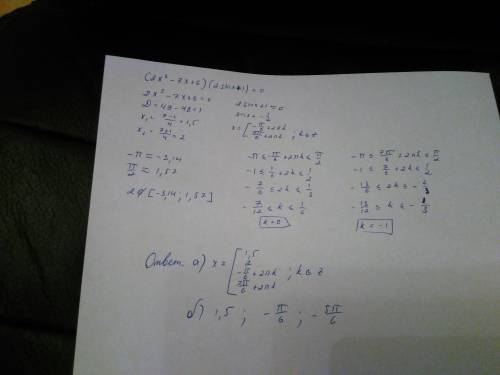 (2x² - 7x + 6)(2sinx+1) = 0
2x² - 7x + 6 = 0
D = 49 - 48 = 1
x₁ = (7-1)/4 = 1,5
x₂ = (7+1)/4 = 2
2sinx+1 = 0
sinx = -1/2
x = [ -π/6 + 2πk
7π/6 + 2πk ; k ∈ z
-π ≈ -3,14
π/2 ≈ 1,57
2 ∉ [-3,14; 1,57]
-π ≤ -π/6 + 2πk ≤ π/2
-1 ≤ -1/6 + 2k ≤ 1/2
-5/6 ≤ 2k ≤
-π ≤ 7π/6 + 2πk ≤ π/2
-1 ≤ 7/6 + 2k ≤ 1/2
-13/6 ≤ 2k ≤ -2/3
-13/12 ≤ k ≤ -1/3
k = -1
Ответ: а) x = [ 1,5
2
-π/6 + 2πk ; k ∈ z
7π/6 + 2πk
б) 1,5 ; -π/6 ; -5π/6